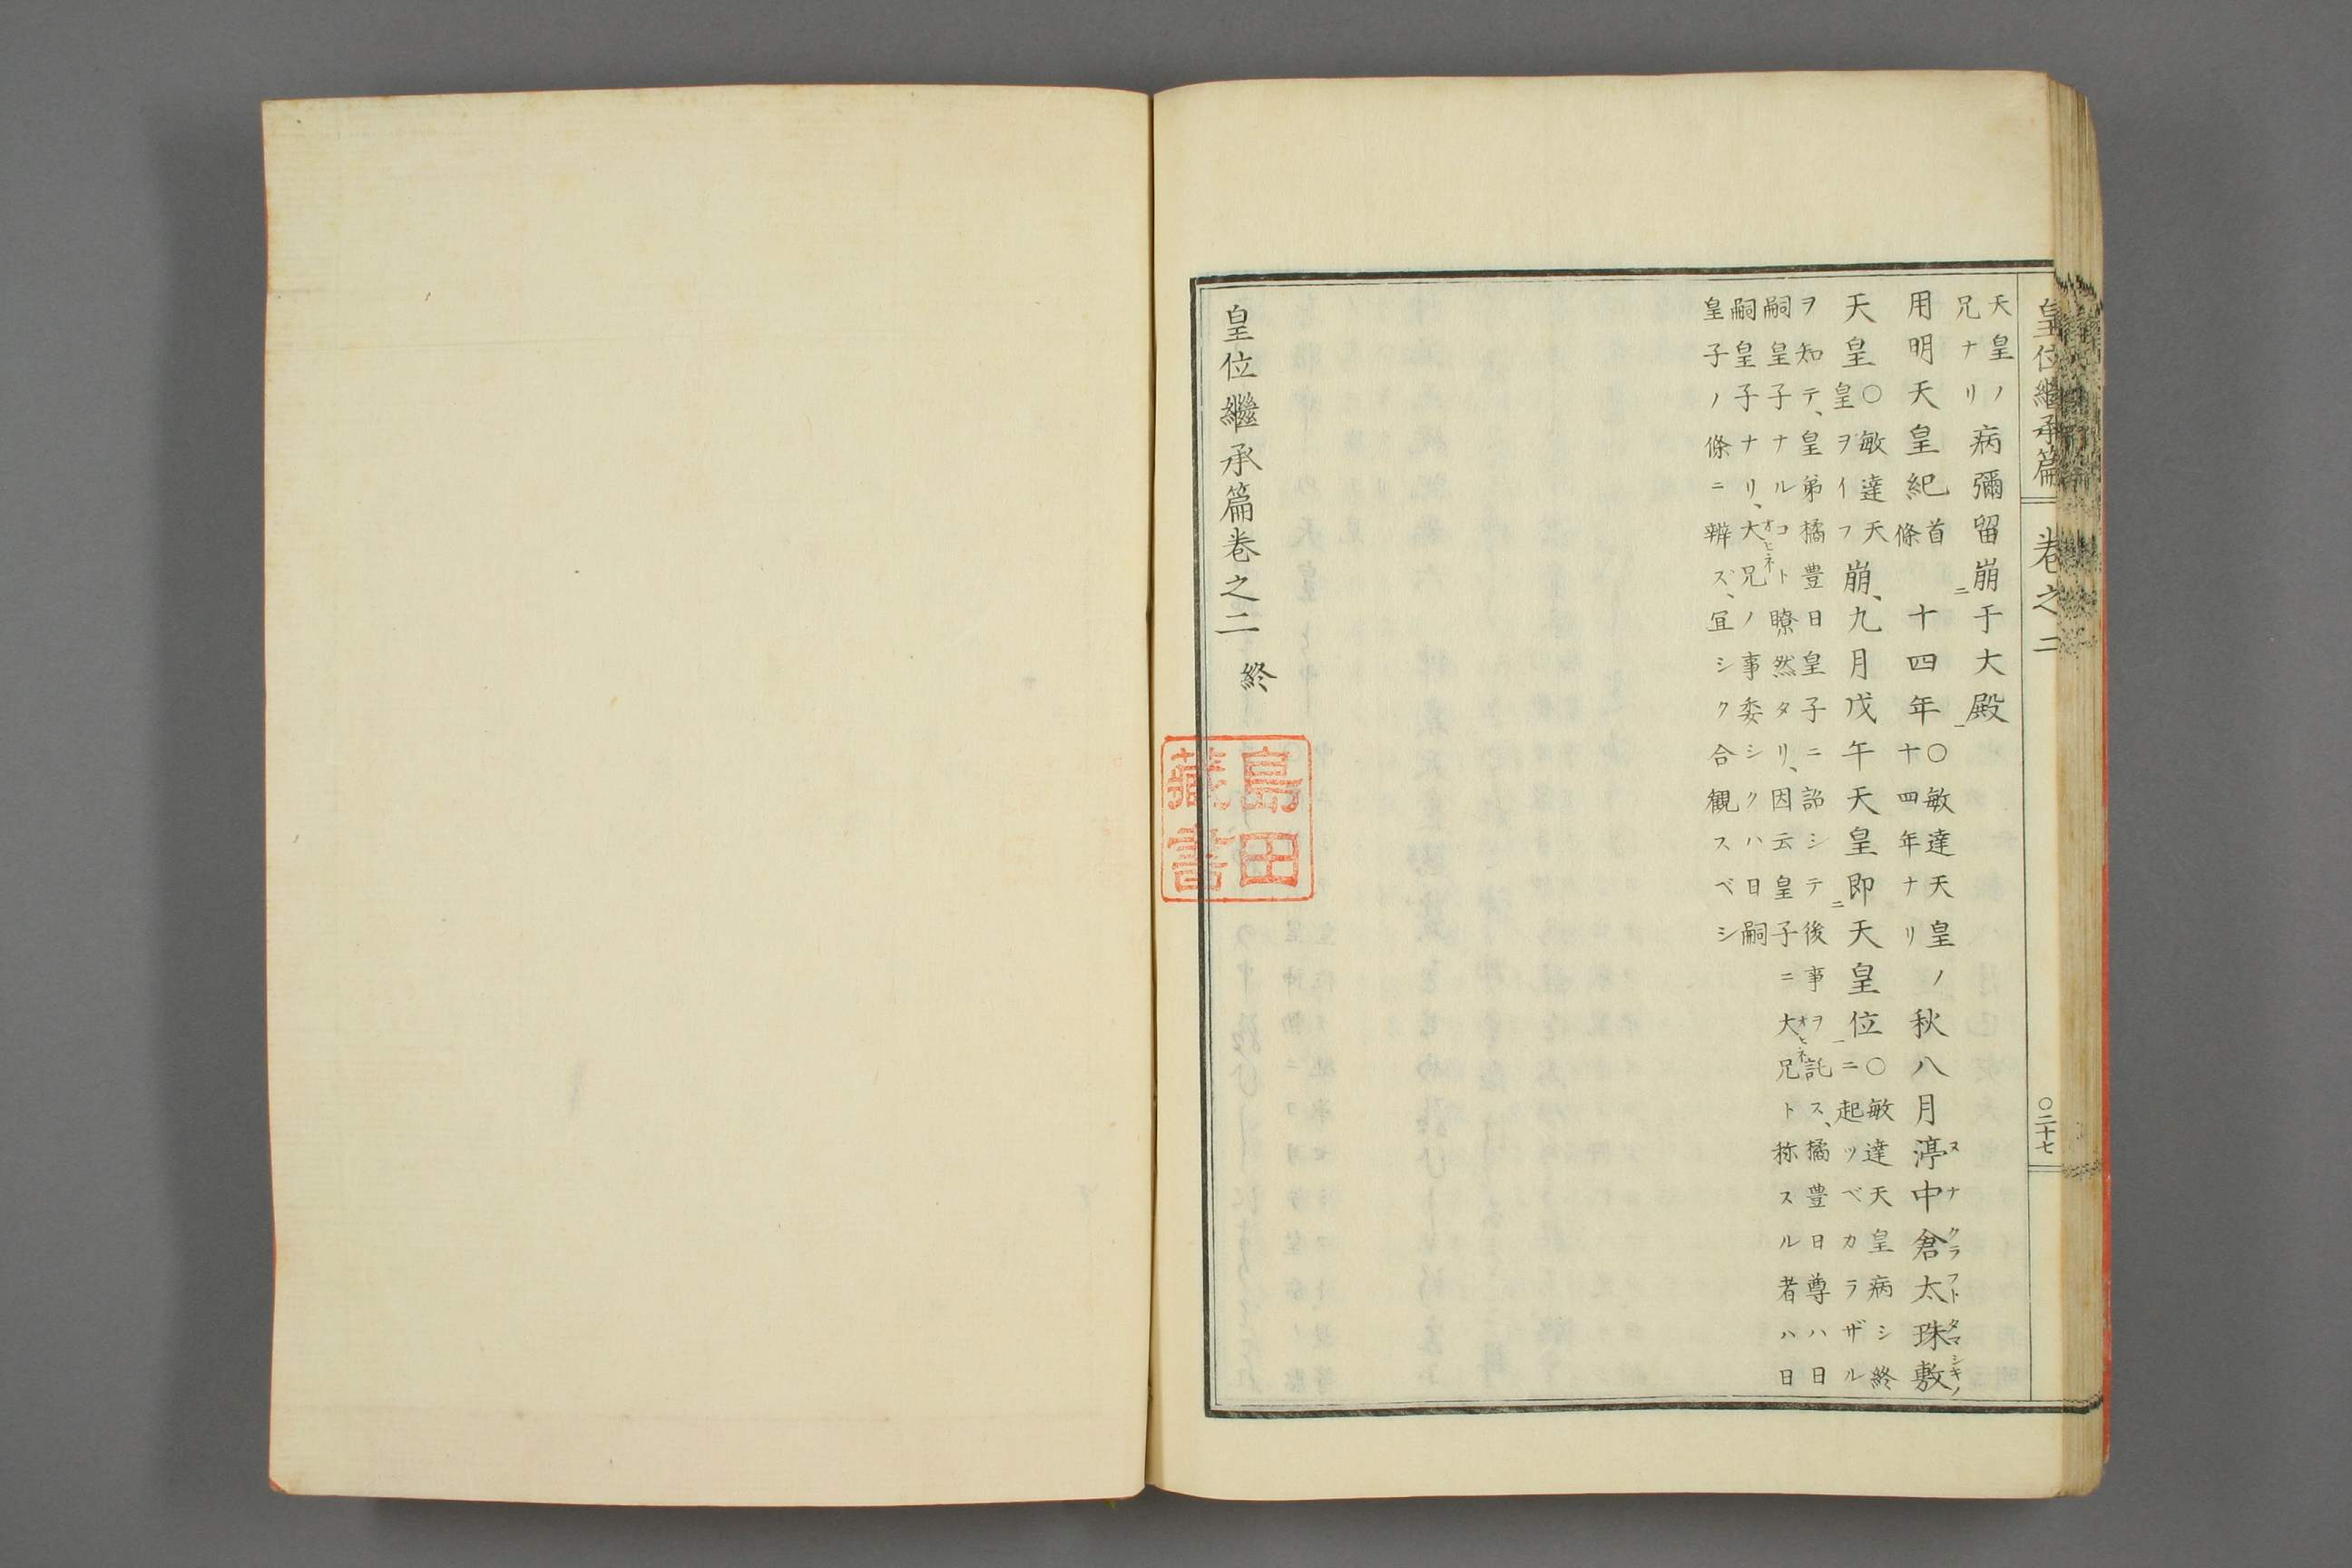 皇位繼承篇 卷之二 〇二十七
天皇ノ兄ナリ病彌留崩㆓于大殿㆒
用明天皇紀首條十四年〇敏達天皇ノ十四年ナリ秋八月渟中倉太珠敷
ヌナクラフトタマシキノ
天皇〇敏達天皇ヲイフ崩、九月戊午天皇即㆓天皇位㆒〇敏達天皇病シ終ニ起ツベカラザル
ヲ知テ、皇弟橘豊日皇子ニ詔シテ後事ヲ託ス、橘豊日尊ハ日
嗣皇子ナルコト瞭然タリ、因云皇子ニ大兄ト称スル者ハ日
オヒネ
嗣皇子ナリ、大兄ノ事委シクハ日嗣
オヒネ
皇子ノ條ニ辨ズ、宜シク合観スベシ
皇位繼承篇卷之二 終
島田
藏書